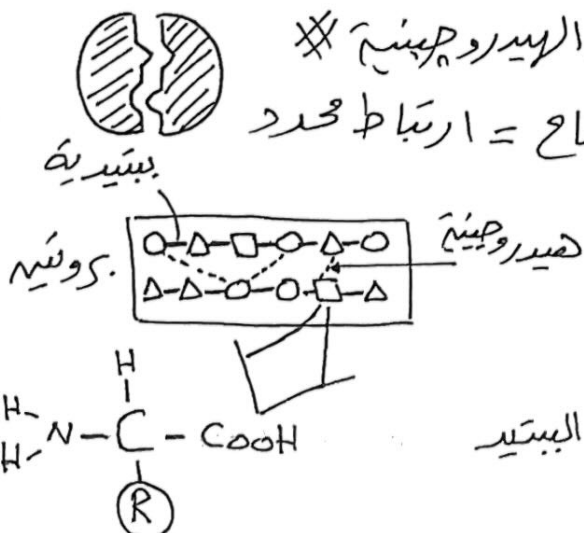 الهيدروجينية #
= ارتباط محدد
ببتيدية
بروتين
هيدروجينية
H
H
H
N - C - COOH
R
الببتيد